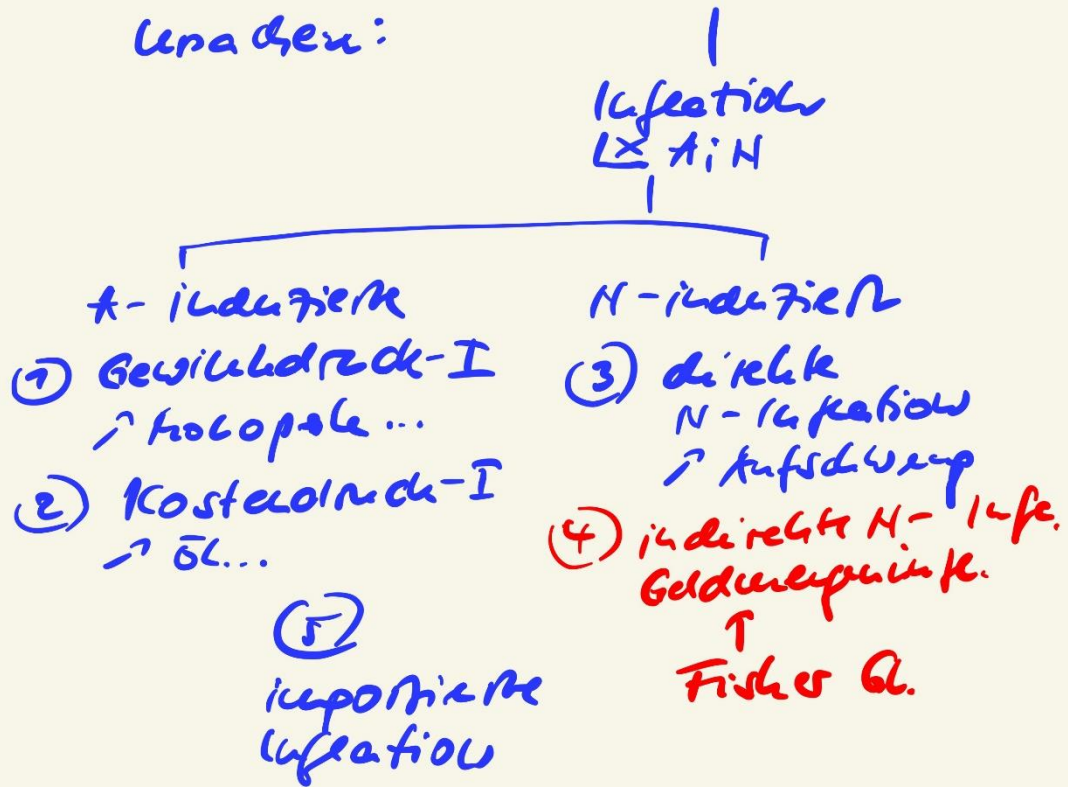 Ursachen:
Inflation
A i N
A-induzierte
N-induziert
① Gewinndruck-I
↗ Monopole...
② Kostendruck-I
↗ Öl...
③ direkte
N-Inflation
↗ Aufschwung
④ indirekte N-Infl.
Geldmengeninfl.
↑
Fisher Gl.
⑤
importierte
Inflation